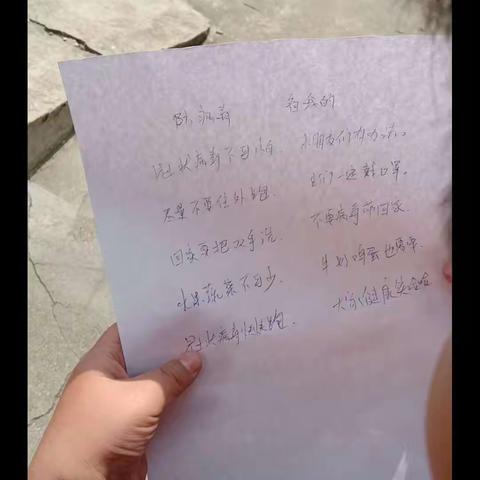 防病毒 
冠状病毒不可怕. 小朋友们
尽量不要往外跑 出门一定戴口罩。
回家要把双手洗. 不要病毒带回家
水果蔬菜不可少. 牛奶鸡蛋也需要.
冠状病毒快快跑. 大家健康笑哈哈